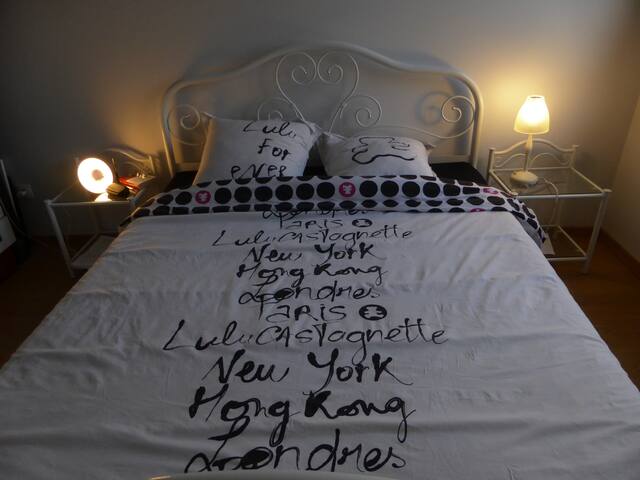 Lulu
For
eVeR
PARIS
LuluCASTagnette
New York
Hong Kong
Londres
PARIS
LuluCASTagnette
New York
Hong Kong
Londres